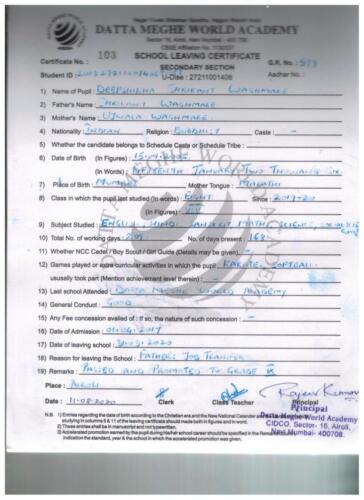 DATTA MEGHE WORLD ACADEMY
Sector 16, Airoli, Navi Mumbai - 400 708.
SCHOOL LEAVING CERTIFICATE
Certificate No. : 103 G.R. No. :
SECONDARY SECTION
Student ID U-Dise : 27211001406 Aadhar No. :
1) Name of Pupil : DEEPSHIKHA SHRIKANT WAGHMARE
2) Father's Name : SHRIKANT WAGHMARE
3) Mother's Name : UJWALA WAGHMARE
4) Nationality : INDIAN Religion : BUDDHIST Caste : -
5) Whether the candidate belongs to Schedule Caste or Schedule Tribe : -
6) Date of Birth (In Figures) :
(In Words) : FIFTEENTH JANUARY TWO THOUSAND SIX
7) Place of Birth : MUMBAI Mother Tongue : MARATHI
8) Class in which the pupil last studied (In words) : EIGHT Since : 2019-20
(In Figures) : VIII
9) Subject Studied : ENGLISH, HINDI, SANSKRIT, MATH, SCIENCE,
10) Total No. of working days : No. of days present : 168
11) Whether NCC Cadet / Boy Scout / Girl Guide (Details may be given) : -
12) Games played or extra curricular activities in which the pupil KARATE, SOFTBALL
usually took part (Mention achievement level therein) : -
13) Last school Attended : DATTA MEGHE WORLD ACADEMY
14) General Conduct : GOOD
15) Any Fee concession availed of : If so, the nature of such concession : -
16) Date of Admission : 01.06.2017
17) Date of leaving school :
18) Reason for leaving the School : FATHER'S JOB TRANSFER
19) Remarks : PASSED AND PROMOTED TO GRADE IX
Place : AIROLI
Date : 11-08-2020 Clerk Class Teacher Principal
Rajeev Kumar
Principal
Datta Meghe World Academy
CIDCO, Sector- 16, Airoli,
Navi Mumbai- 400708.
N.B. 1) Entries regarding the date of birth according to the Christian era and the New National Calendar
studying in columns 5 & 11 of the leaving certificate should made both in figures and in word.
2) These entries shall be in manuscript and not typewritten.
3) Accelerated promotion earned by the pupil during his/her school career should be specified in the Remarks
indication the standard, year & the school in which the accelerated promotion was given.